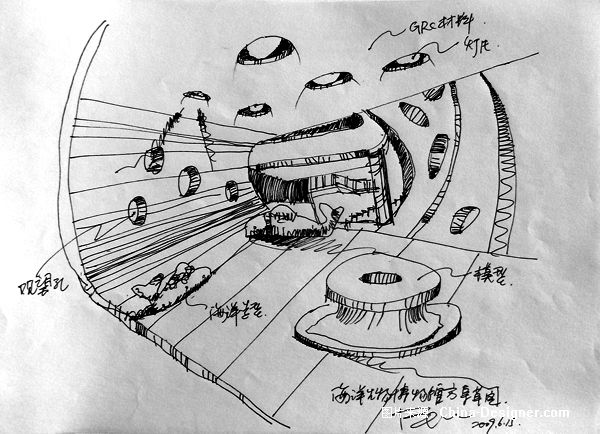 GRC材料
灯孔
观景孔
海洋造型
模型
海洋生物博物馆方案草图
图片来源：China-Designer.com
2009.6.15